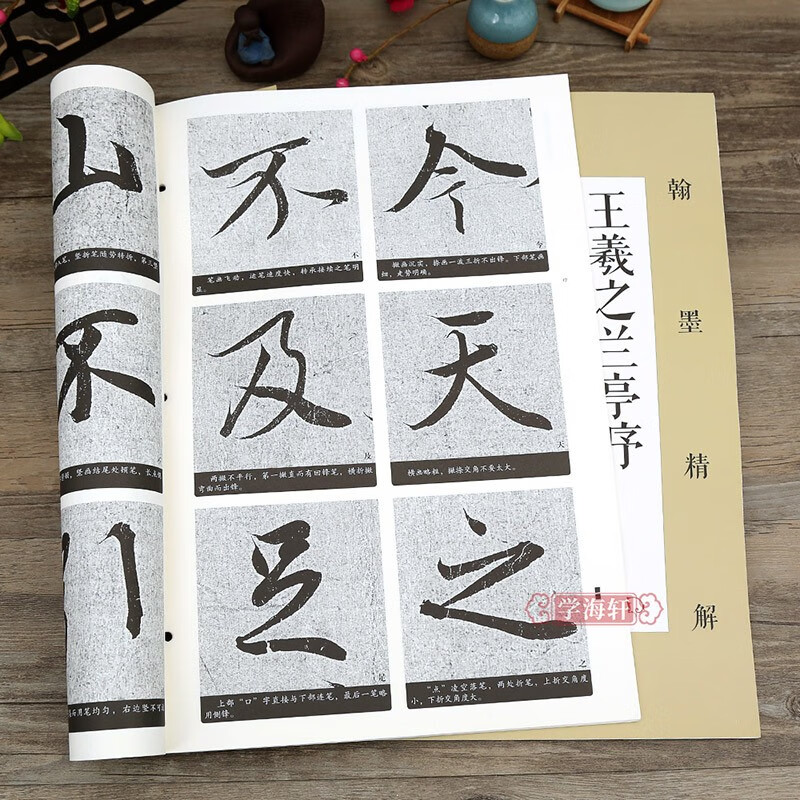 山
入笔，竖折笔随势转折，第三竖
不
竖画结尾处顿笔，长点
川
所用笔均匀，右边竖不可
不
不
笔画飞动，运笔速度快，转承接续之笔明
显。
今
今
撇画沉实，捺画一波三折不出锋。下部笔画
细，走势明确。
及
及
两撇不平行，第一撇直而有回锋笔，横折撇
弯曲而出锋。
天
天
横画略粗，撇捺交角不要太大。
足
足
上部“口”字直接与下部连笔，最后一笔略
用侧锋。
之
之
“点”凌空落笔，两处折笔，上折交角度
小，下折交角度大。
王羲之兰亭序
翰墨精解
学海轩